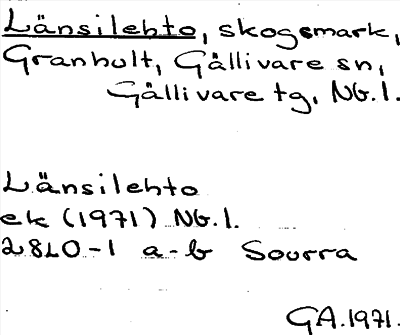 Länsilehto, skogsmark,
Granhult, Gällivare sn,
Gällivare tg, Nb.l.
Länsilehto
ek (1971) Nb.l.
28L0-1 a-b Sourra
GA.1971.